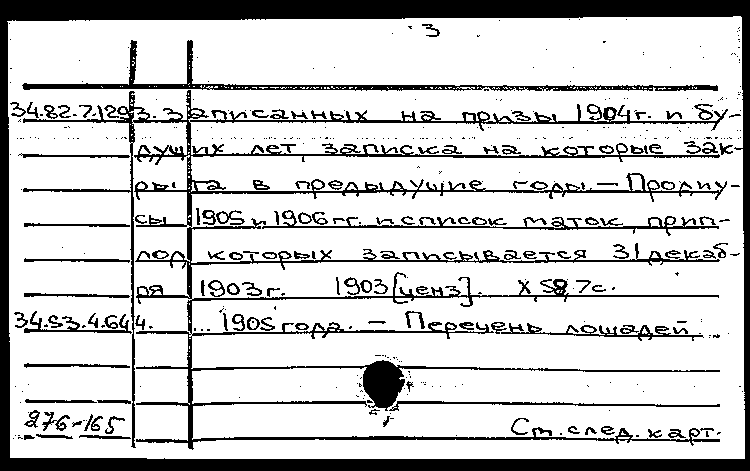 3
34.82.7.129 3. Записанных на призы 1904г. и бу-
дущих лет, записка на которые зак-
рыта в предыдущие годы. — Продиу-
сы 1905 и 1906 гг. и список маток, прип-
лод которых записывается 31 декаб-
ря 1903г. 1903 [ценз]. X, 58, 7с.
34.53.4.64 4. ... 1905 года. — Перечень лошадей,
276-165 См. след. карт.